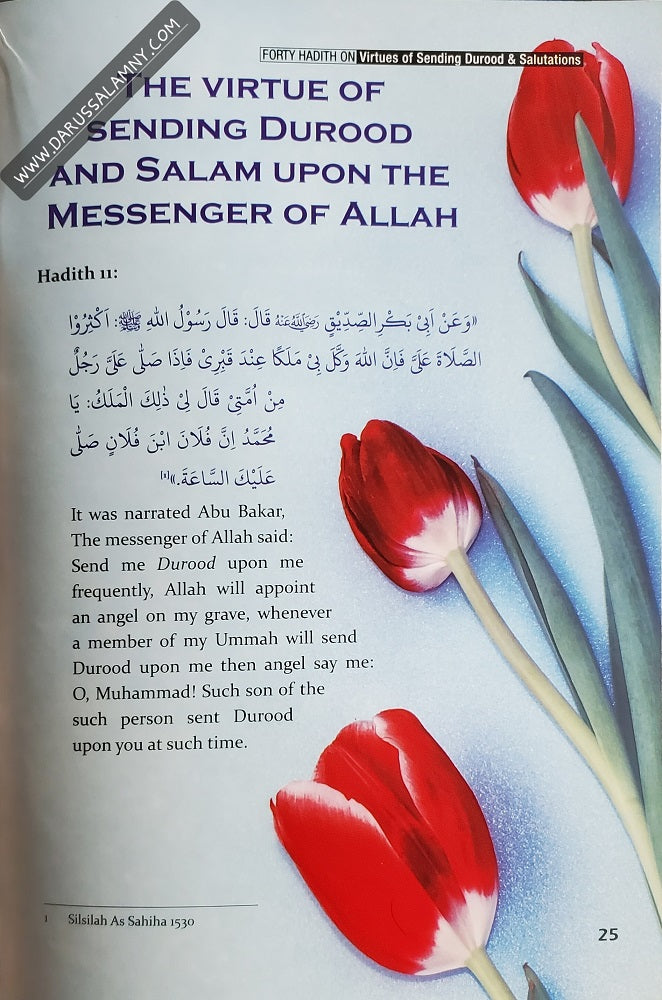 WWW.DARUSSALAMNY.COM
FORTY HADITH ON Virtues of Sending Durood & Salutations
THE VIRTUE OF
SENDING DUROOD
AND SALAM UPON THE
MESSENGER OF ALLAH
Hadith 11:
«وَعَنْ اَبِيْ بَكْرِ الصِّدِّيْقِ رَضِيَ اللَّهُ عَنْهُ قَالَ: قَالَ رَسُوْلُ اللهِ ﷺ: اَكْثِرُوْا
الصَّلَاةَ عَلَيَّ فَاِنَّ اللهَ وَكَّلَ بِيْ مَلَكًا عِنْدَ قَبْرِيْ فَاِذَا صَلّٰى عَلَيَّ رَجُلٌ
مِنْ اُمَّتِيْ قَالَ لِيْ ذٰلِكَ الْمَلَكُ: يَا
مُحَمَّدُ اِنَّ فُلَانَ ابْنَ فُلَانٍ صَلّٰى
عَلَيْكَ السَّاعَةَ.»[1]
It was narrated Abu Bakar,
The messenger of Allah said:
Send me Durood upon me
frequently, Allah will appoint
an angel on my grave, whenever
a member of my Ummah will send
Durood upon me then angel say me:
O, Muhammad! Such son of the
such person sent Durood
upon you at such time.
1 Silsilah As Sahiha 1530
25